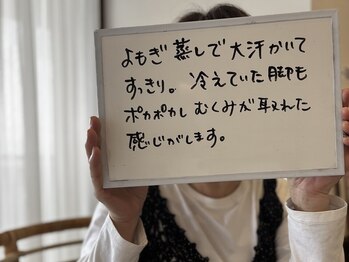 よもぎ蒸しで大汗かいて
すっきり。冷えていた脚も
ポカポカし むくみが取れた
感じがします。